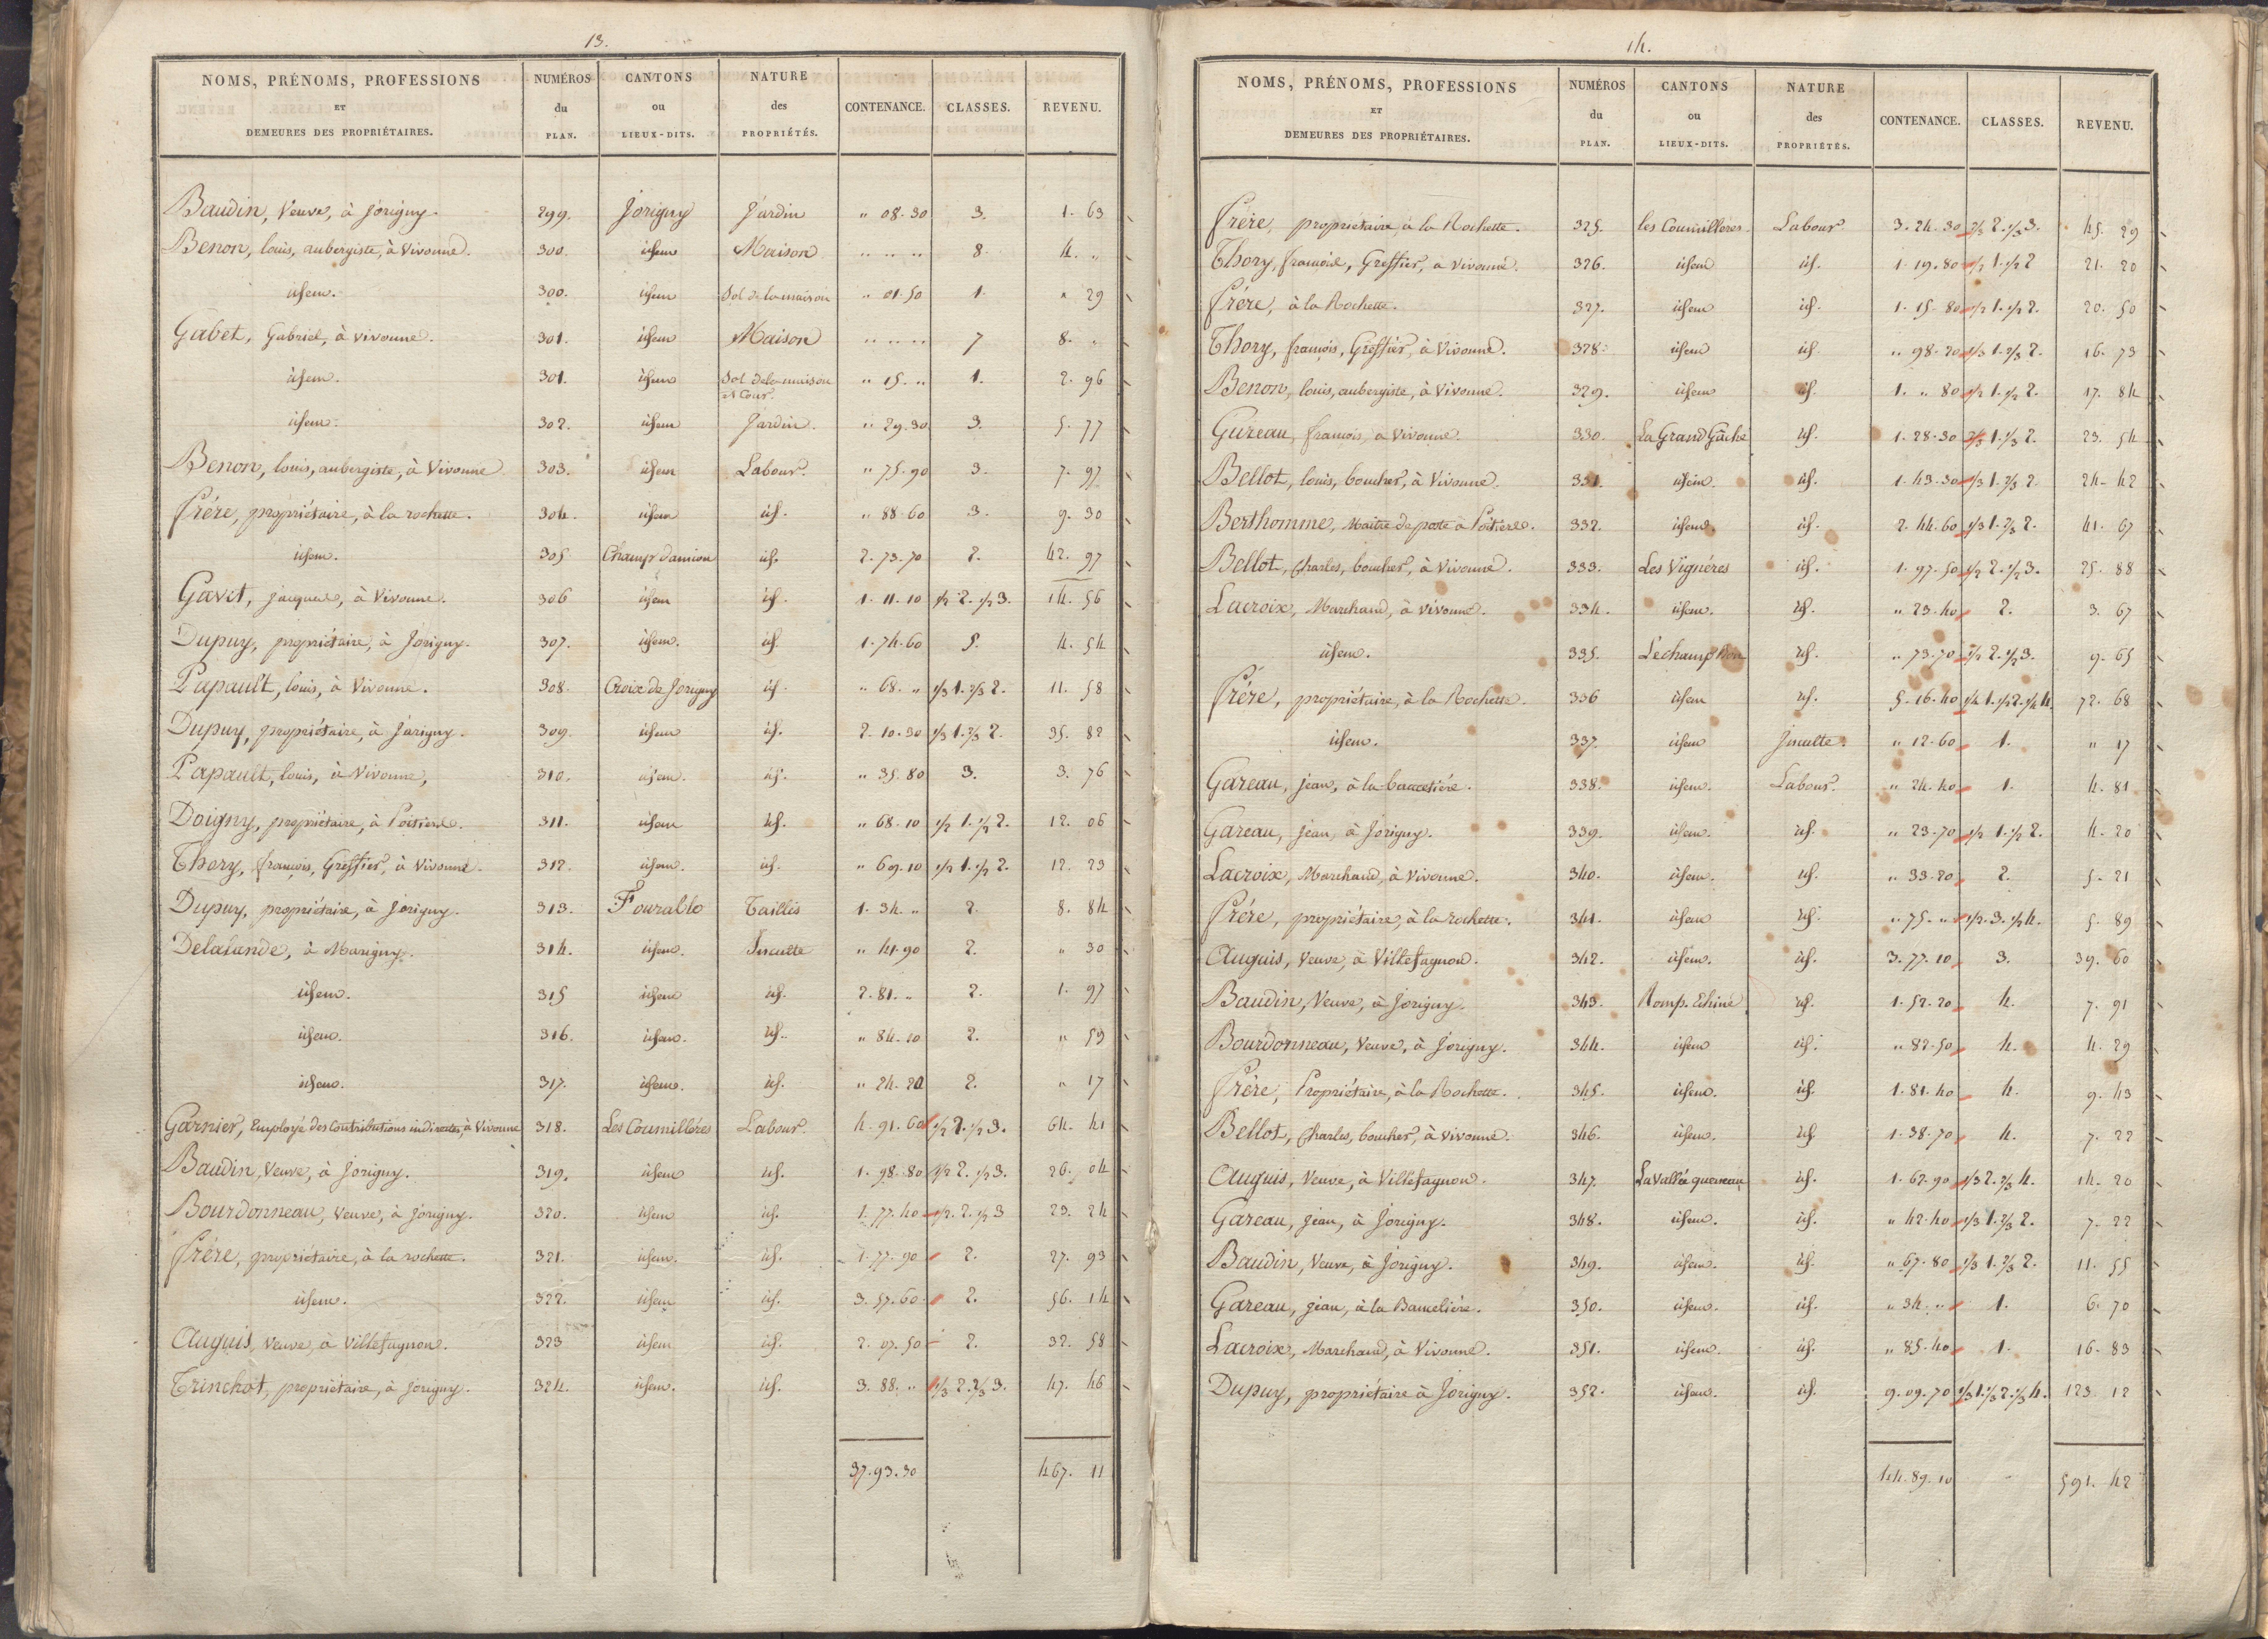 13.
NOMS, PRÉNOMS, PROFESSIONS ET DEMEURES DES PROPRIÉTAIRES. NUMÉROS du PLAN. CANTONS ou LIEUX-DITS. NATURE des PROPRIÉTÉS. CONTENANCE. CLASSES. REVENU.
Baudin, Veuve, à Jorigny. 299. Jorigny Jardin " 08.30 3. 1. 63
Benon, louis, aubergiste, à Vivonne. 300. idem Maison " " " 8. 4. "
idem. 300. idem Sol de la maison " 01.50 1. " 29
Gabet, Gabriel, à vivonne. 301. idem Maison " " " 7 8. "
idem. 301. idem Sol de la maison et Cour. " 15. " 1. 2. 96
idem. 302. idem Jardin. " 29.30 3. 5. 77
Benon, louis, aubergiste, à Vivonne 303. idem Labour. " 75.90 3. 7. 97
Frére, propriétaire, à la rochette. 304. idem id. " 88.60 3. 9. 30
idem. 305 Champ damion id. 2.73.70 2. 42. 97
Gavet, jacques, à Vivonne. 306 idem id. 1.11.10 1/2 2. 1/2 3. 14. 56
Dupuy, propriétaire, à Jorigny. 307. idem. id. 1.74.60 5. 4. 54
Papault, louis, à Vivonne. 308. Croix de Jorigny id. " 68. " 1/3 1. 2/3 2. 11. 58
Dupuy, propriétaire, à Jorigny. 309. idem id. 2.10.30 1/3 1. 2/3 2. 35. 82
Papault, louis, à Vivonne, 310. idem. id. " 35.80 3. 3. 76
Doigny, propriétaire, à Poitiers. 311. idem id. " 68.10 1/2 1. 1/2 2. 12. 06
Thory, françois, Greffier, à Vivonne. 312. idem. id. " 69.10 1/2 1. 1/2 2. 12. 23
Dupuy, propriétaire, à Jorigny. 313. Fourallo Taillis 1.34. " 2. 8. 84
Delalande, à Marigny. 314. idem. Inculte " 41.90 2. " 30
idem. 315 idem id. 2.81. " 2. 1. 97
idem. 316. idem. id. " 84.20 2. " 59
idem. 317. idem. id. " 24.20 2. " 17
Garnier, Employé des Contributions indirectes, à Vivonne 318. Les Coumilléres Labour. 4.91.60 1/2 2. 1/2 3. 64. 41
Baudin, Veuve, à Jorigny. 319. idem id. 1.98.80 1/2 2. 1/2 3. 26. 04
Bourdonneau, Veuve, à jorigny. 320. idem id. 1.77.40 1/2. 2. 1/2 3 23. 24
Frére, propriétaire, à la rochette. 321. idem. id. 1.77.90 2. 27. 93
idem. 322. idem id. 3.57.60 2. 56. 14
Auguis, Veuve, à Villefagnon. 323 idem id. 2.07.50 2. 32. 58
Trinchot, propriétaire, à jorigny. 324. idem. id. 3.88. " 1/3 2. 2/3 3. 47. 46
37.93.30 467. 11
14.
NOMS, PRÉNOMS, PROFESSIONS ET DEMEURES DES PROPRIÉTAIRES. NUMÉROS du PLAN. CANTONS ou LIEUX-DITS. NATURE des PROPRIÉTÉS. CONTENANCE. CLASSES. REVENU.
Frére, propriétaire, à la Rochette. 325. les Coumilléres. Labour. 3.24.30 2/3 2. 1/3 3. 45. 29
Thory, françois, Greffier, à Vivonne. 326. idem id. 1.19.80 1/2 1. 1/2 2 21. 20
Frére, à la Rochette. 327. idem id. 1.15.80 1/2 1. 1/2 2. 20. 50
Thory, françois, Greffier, à Vivonne. 328. idem id. " 98.20 1/3 1. 2/3 2. 16. 73
Benon, louis, aubergiste, à Vivonne. 329. idem id. 1. " 80 1/2 1. 1/2 2. 17. 84
Gureau, françois, à Vivonne. 330. La Grand Gâche id. 1.28.30 2/3 1. 1/3 2. 23. 54
Bellot, louis, boucher, à Vivonne. 331. idem. id. 1.43.30 1/3 1. 2/3 2. 24. 42
Berthomme, Maitre de poste à Poitiers. 332. idem. id. 2.44.60 1/3 1. 2/3 2. 41. 67
Bellot, Charles, boucher, à Vivonne. 333. Les Vignéres id. 1.97.50 1/2 2. 1/2 3. 25. 88
Lacroix, Marchand, à vivonne. 334. idem. id. " 23.40 2. 3. 67
idem. 335. Lechamp Bon id. " 73.70 1/2 2. 1/2 3. 9. 65
Frére, propriétaire, à la Rochette. 336 idem id. 5.16.40 1/4 1. 1/2 2. 1/4 4. 72. 68
idem. 337. idem Inculte. " 12.60 1. " 17
Gareau, jean, à la 338. idem. Labour. " 24.40 1. 4. 81
Gareau, jean, à Jorigny. 339. idem. id. " 23.70 1/2 1. 1/2 2. 4. 20
Lacroix, Marchand, à Vivonne. 340. idem. id. " 33.20 2. 5. 21
Frére, propriétaire, à la rochette. 341. idem id. " 75. " 1/2. 3. 1/2 4. 5. 89
Auguis, Veuve, à Villefagnon. 342. idem. id. 3.77.10 3. 39. 60
Baudin, Veuve, à Jorigny. 343. Romp. Echine id. 1.52.20 4. 7. 91
Bourdonneau, Veuve, à Jorigny. 344. idem id. " 82.50 4. 4. 29
Frére, Propriétaire, à la Rochette. 345. idem. id. 1.81.40 4. 9. 43
Bellot, Charles, boucher, à vivonne. 346. idem. id. 1.38.70 4. 7. 22
Auguis, Veuve, à Villefagnon. 347. La Vallée queneau id. 1.62.90 1/3 2. 2/3 4. 14. 20
Gareau, jean, à Jorigny. 348. idem. id. " 42.40 1/3 1. 2/3 2. 7. 22
Baudin, Veuve, à Jorigny. 349. idem. id. " 67.80 1/3 1. 2/3 2. 11. 55
Gareau, jean, à la Bameliére. 350. idem. id. " 34. " 1. 6. 70
Lacroix, Marchand, à Vivonne. 351. idem. id. " 85.40 1. 16. 83
Dupuy, propriétaire à Jorigny. 352. idem. id. 9.09.70 1/3 1. 1/3 2. 1/3 4. 123. 12
44.89.10 591. 42